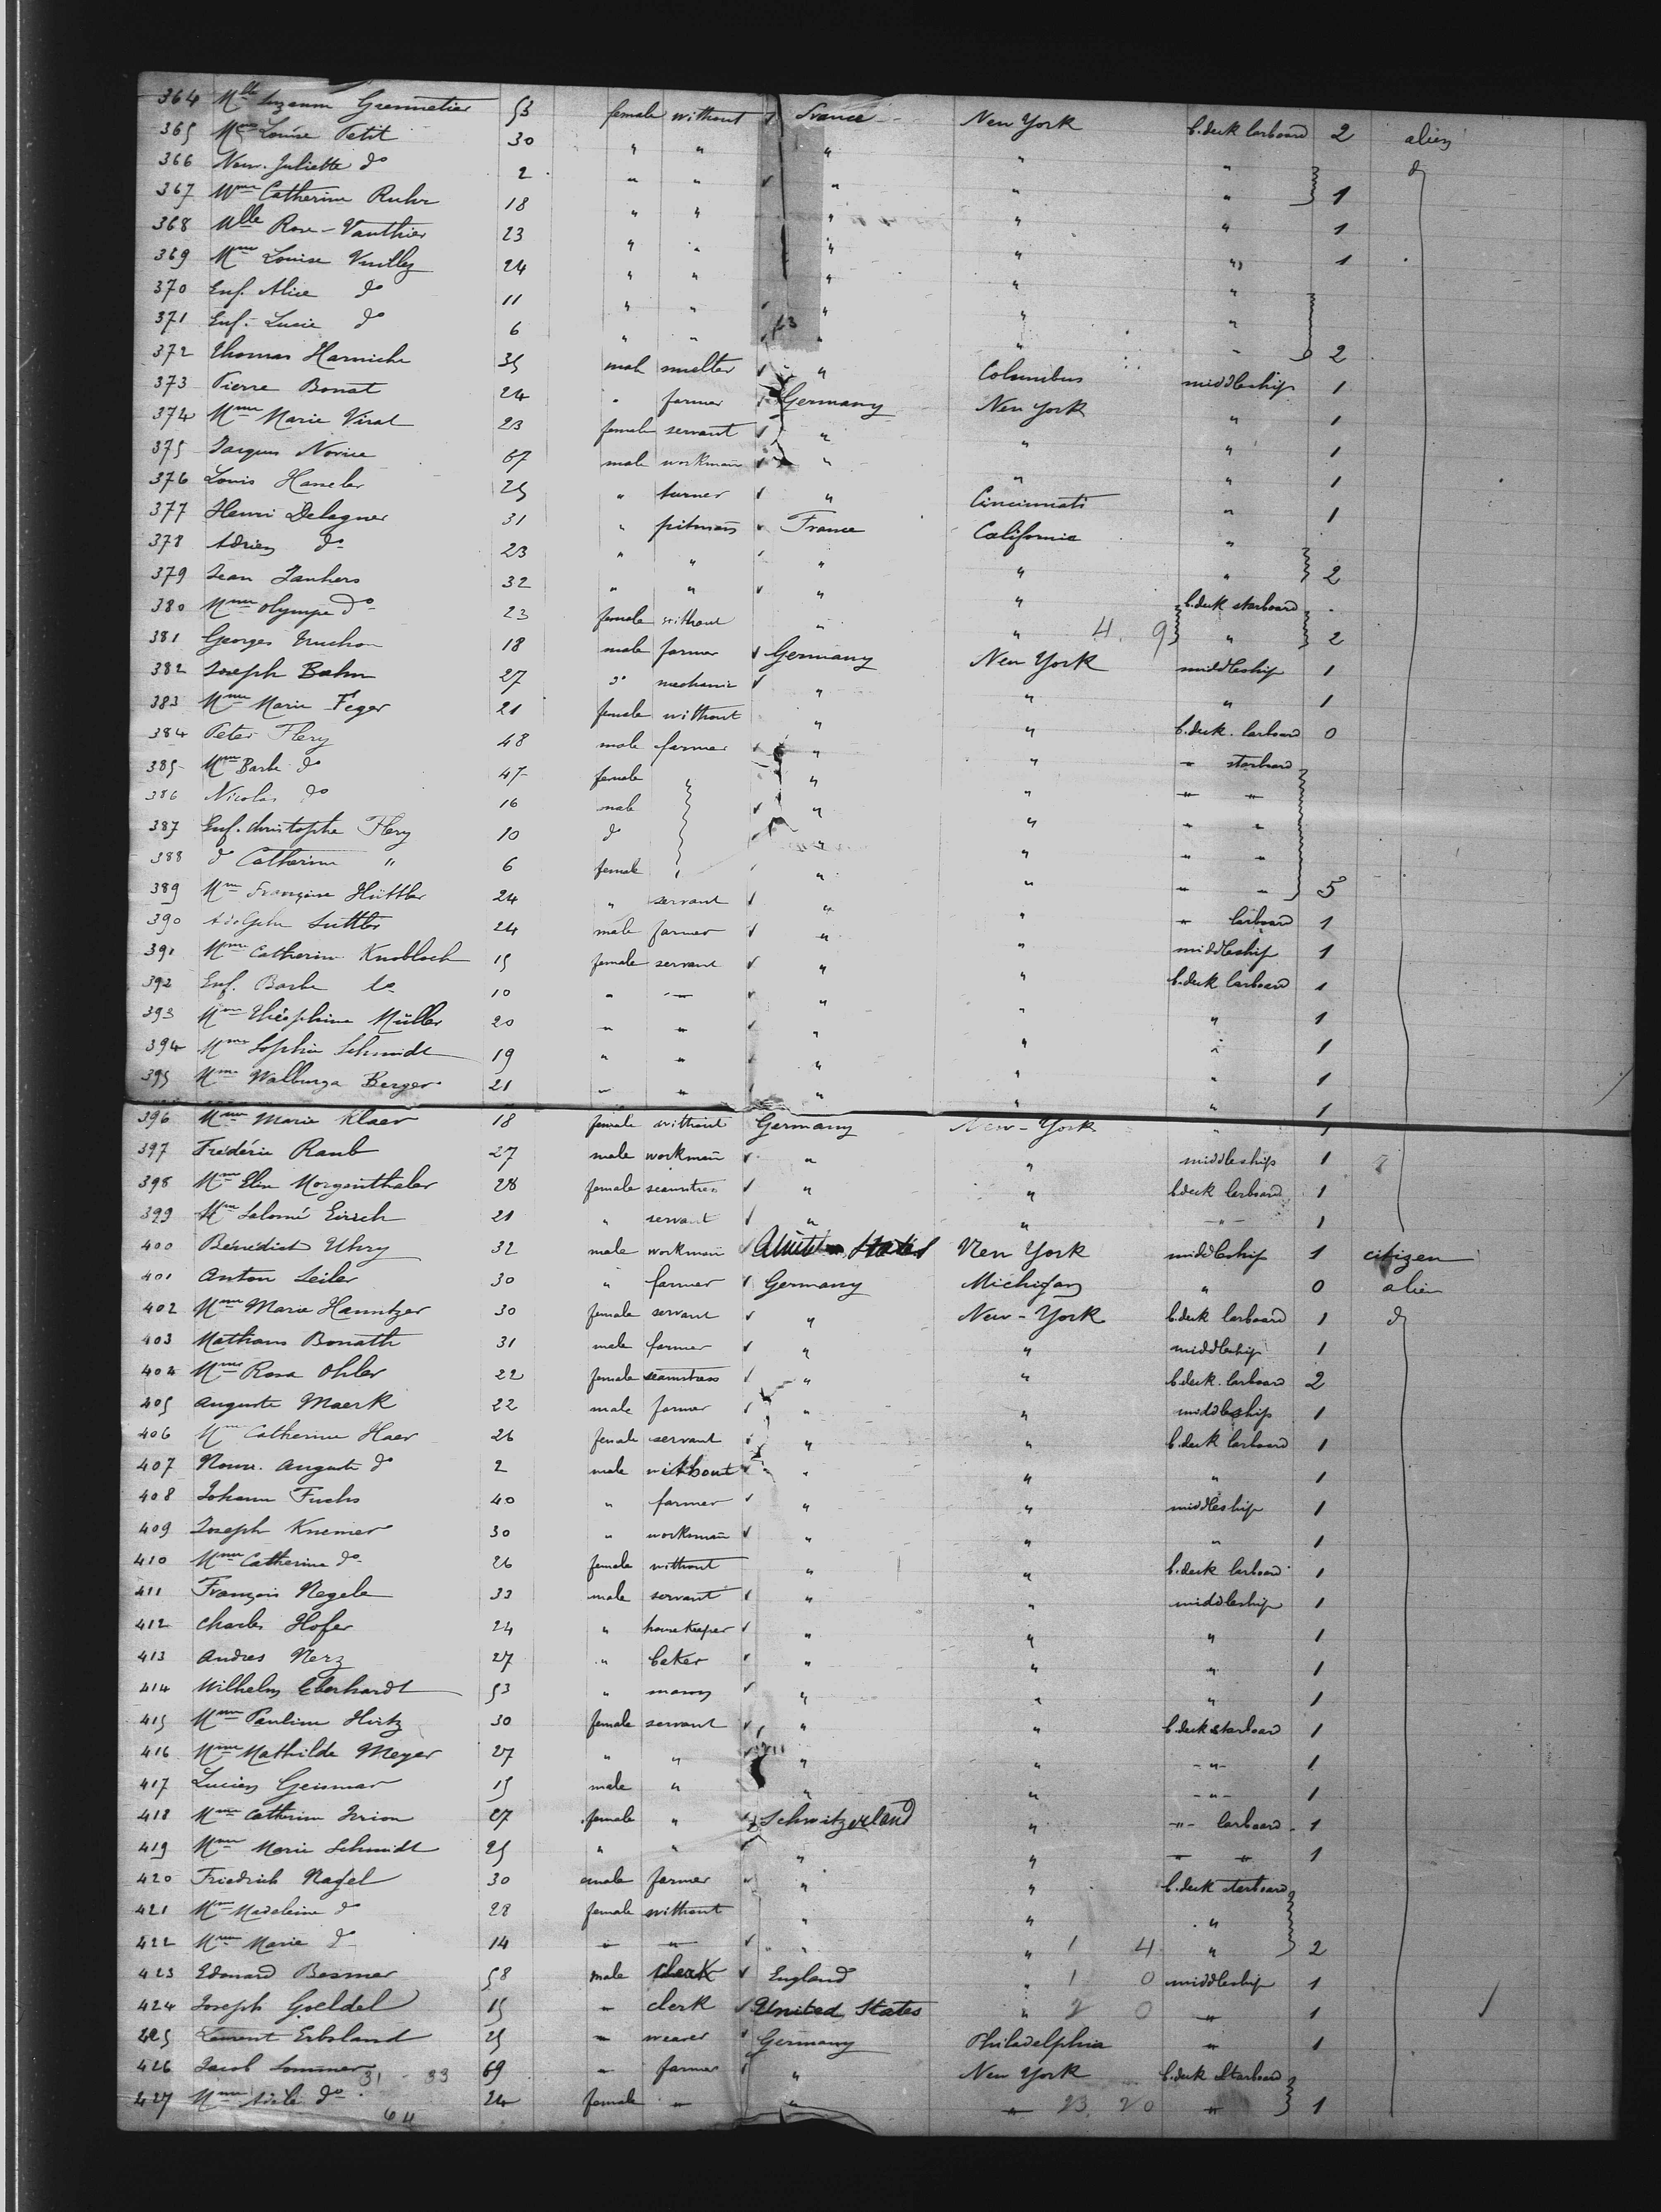 364 Mlle Suzanne Grennetier 53 female without France New York b.deck larboard 2 alien
365 Mme Louise Petit 30 " " " " " do
366 Nour. Juliette do 2 " " " " " 1
367 Mme Catherine Ruhr 18 " " " " " 1
368 Mlle Rose Vauthier 23 " " " " " 1
369 Mme Louise Vuillez 24 " " " " "
370 Enf. Alice do 11 " " " " "
371 Enf. Lucie do 6 " " " " " 2
372 Thomas Harniche 35 male smelter " Columbus middleship 1
373 Pierre Bonat 24 " farmer Germany New York " 1
374 Mme Marie Virat 23 female servant " " " 1
375 Jacques Novice 67 male workman " " " 1
376 Louis Hanseler 25 " turner " Cincinnati " 1
377 Henri Delagner 31 " pitman France California "
378 Adrien do 23 " " " " " 2
379 Jean Janhers 32 " " " " b.deck starboard
380 Mme Olympe do 23 female without " " 4. 9 " 2
381 Georges Truchon 18 male farmer Germany New York middleship 1
382 Joseph Bahn 27 do mechanic " " " 1
383 Mme Marie Feger 21 female without " " b.deck larboard 0
384 Peter Flery 48 male farmer " " " starboard
385 Mme Barbe do 47 female " " " "
386 Nicolas do 16 male " " " "
387 Enf. Christophe Flery 10 do " " " "
388 do Catherine " 6 female " " " " 5
389 Mme Françoise Hüttler 24 " servant " " " larboard 1
390 Adolphe Suttler 24 male farmer " " middleship 1
391 Mme Catherine Knobloch 15 female servant " " b.deck larboard 1
392 Enf. Barbe do 10 " " " " " 1
393 Mme Théophine Müller 20 " " " " " 1
394 Mme Sophie Schmidt 19 " " " " " 1
395 Mme Walburga Berger 21 " " " " " 1
396 Mme Marie Klaer 18 female without Germany New-York " 1
397 Frédéric Raub 27 male workman " " middleship 1
398 Mme Elin Morgenthaler 28 female seamstress " " b.deck larboard 1
399 Mme Salomé Eirich 21 " servant " " " 1
400 Bénédict Uhry 32 male workman United States New York middleship 1 citizen
401 Anton Seiler 30 " farmer Germany Michigan " 0 alien
402 Mme Marie Hanntzer 30 female servant " New-York b.deck larboard 1 do
403 Mathaus Bonath 31 male farmer " " middleship 1
404 Mme Rosa Ohler 22 female seamstress " " b.deck larboard 2
405 Auguste Maerk 22 male farmer " " middleship 1
406 Mme Catherine Haer 26 female servant " " b.deck larboard 1
407 Nour. Auguste do 2 male without " " " 1
408 Johann Fuchs 40 " farmer " " middleship 1
409 Joseph Knemer 30 " workman " " " 1
410 Mme Catherine do 26 female without " " b.deck larboard 1
411 François Negele 33 male servant " " middleship 1
412 Charles Hofer 24 " housekeeper " " " 1
413 Andres Nerz 27 " baker " " " 1
414 Wilhelm Eberhardt 53 " mason " " " 1
415 Mme Pauline Hirtz 30 female servant " " b.deck starboard 1
416 Mme Mathilde Meyer 27 " " " " " 1
417 Lucien Geismar 15 male " " " " 1
418 Mme Catherine Irion 27 female " Schwitzerland " " larboard 1
419 Mme Marie Schmidt 25 " " " " " " 1
420 Friedrich Nagel 30 male farmer " " b.deck starboard
421 Mme Madeleine do 28 female without " " "
422 Mme Marie do 14 " " " " 1 4 " 2
423 Edouard Besmer 58 male clerk England " 1 0 middleship 1
424 Joseph Goeldel 15 " clerk United States " 2 0 " 1
425 Laurent Erbsland 25 " weaver Germany Philadelphia " 1
426 Jacob Sommer 31 - 33 69 " farmer " New York b.deck Starboard
427 Mme Adèle do 64 24 female " " " 23. 20 " 1